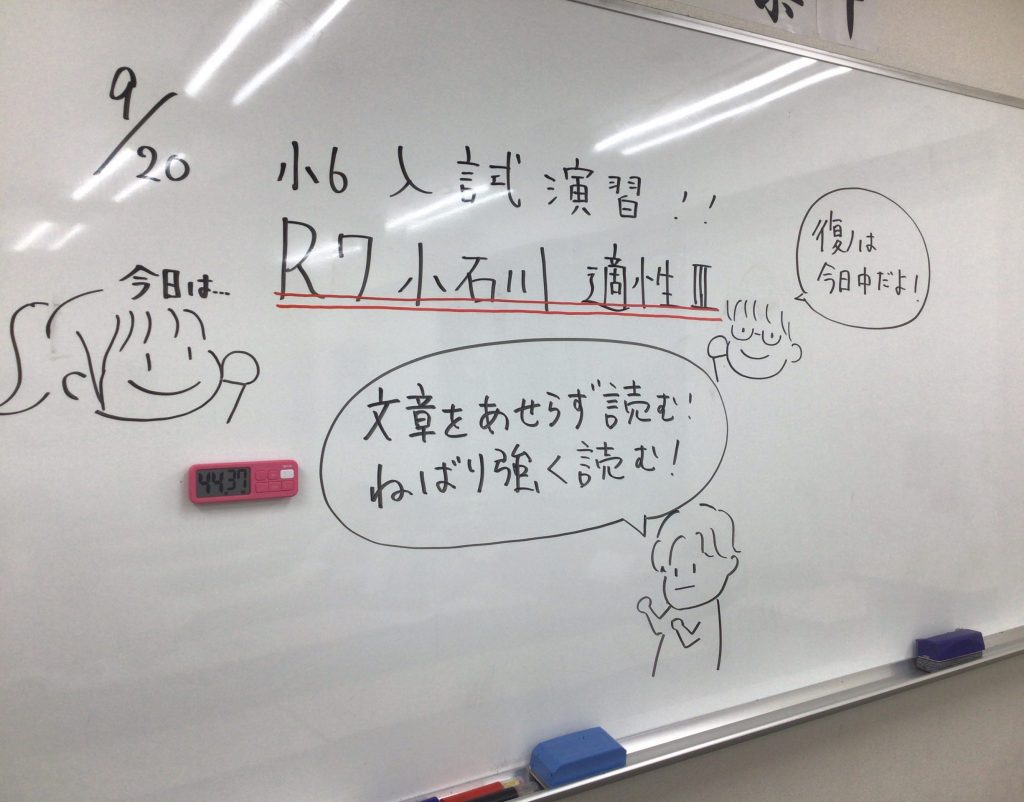 9/20
小6 入試演習!!
R7 小石川 適性Ⅲ
今日は…
復習は
今日中だよ!
文章をあせらず読む!
ねばり強く読む!
44 37